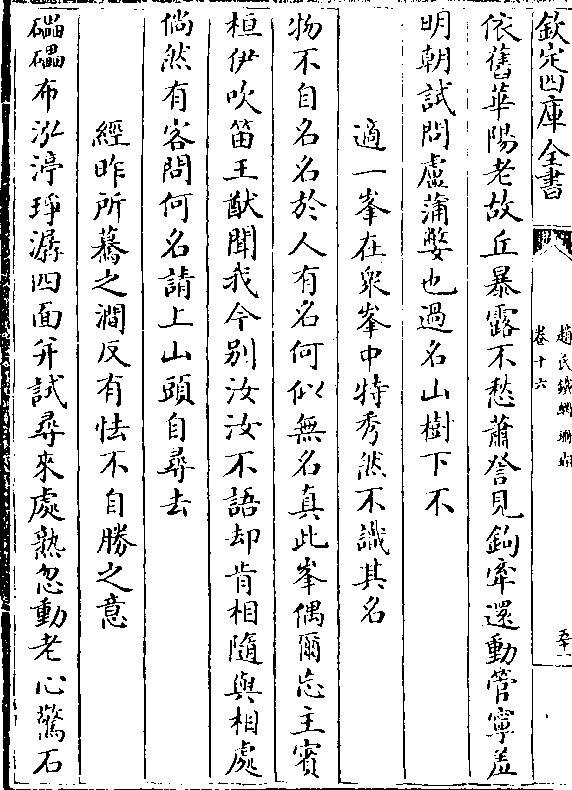 欽定四庫全書
趙氏鐵網珊瑚
卷十六
五十一
依舊華陽老故丘暴露不愁蕭詧見鉤牽還動管寧羞
明朝試問盧蒲嫳也過名山樹下不
適一峯在衆峯中特秀然不識其名
物不自名名於人有名何似無名真此峯偶爾忘主賓
桓伊吹笛王猷聞我今别汝汝不語却肯相隨與相處
倘然有客問何名請上山頭自尋去
經昨所驀之澗反有怯不自勝之意
礧礧布泓渟琤潺四面并試尋來處熟忽動老心驚石